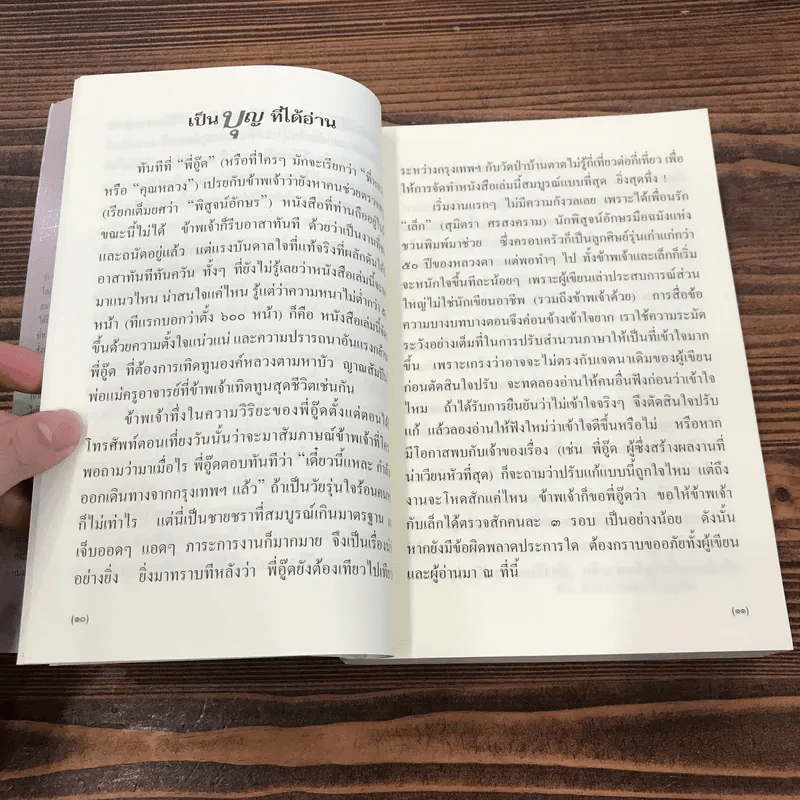 เป็น บุญ ที่ได้อ่าน
ทันทีที่ “พี่อู๊ด” (หรือที่ใครๆ มักจะเรียกว่า
หรือ “คุณหลวง”) เปรยกับข้าพเจ้าว่ายังหาคนช่วยตรวจ
(เรียกเต็มยศว่า “พิสูจน์อักษร”) หนังสือที่ท่านถืออยู่
ขณะนี้ไม่ได้ ข้าพเจ้าก็รีบอาสาทันที ด้วยว่าเป็นงานที่
และถนัดอยู่แล้ว แต่แรงบันดาลใจที่แท้จริงที่ผลักดัน
อาสาทันทีทันควัน ทั้งๆ ที่ยังไม่รู้เลยว่าหนังสือเล่มนี้จะ
มาแนวไหน น่าสนใจแค่ไหน รู้แต่ว่าความหนาไม่ต่ำกว่า
หน้า (ทีแรกบอกว่าตั้ง ๖๐๐ หน้า) ก็คือ หนังสือเล่มนี้
ขึ้นด้วยความตั้งใจแน่วแน่ และความปรารถนาอันแรงกล้า
พี่อู๊ด ที่ต้องการเทิดทูนองค์หลวงตามหาบัว ญาณสัมปันโน
พ่อแม่ครูอาจารย์ที่ข้าพเจ้าเทิดทูนสุดชีวิตเช่นกัน
ข้าพเจ้าทึ่งในความวิริยะของพี่อู๊ดตั้งแต่ตอน
โทรศัพท์ตอนเที่ยงวันนั้นว่าจะมาสัมภาษณ์ข้าพเจ้าที่
พอถามว่ามาเมื่อไร พี่อู๊ดตอบทันทีว่า “เดี๋ยวนี้แหละ
ออกเดินทางจากกรุงเทพฯ แล้ว” ถ้าเป็นวัยรุ่นใจร้อน
ก็ไม่เท่าไร แต่นี่เป็นชายชราที่สมบูรณ์เกินมาตรฐาน
เจ็บออดๆ แอดๆ ภาระการงานก็มากมาย จึงเป็นเรื่อง
อย่างยิ่ง ยิ่งมาทราบทีหลังว่า พี่อู๊ดยังต้องเทียวไปเทียว
(๑๐)
ระหว่างกรุงเทพฯ กับวัดป่าบ้านตาดไม่รู้กี่เที่ยวต่อกี่เที่ยว เพื่อ
ให้การจัดทำหนังสือเล่มนี้สมบูรณ์แบบที่สุด ยิ่งสุดทึ่ง !
เริ่มงานแรกๆ ไม่มีความกังวลเลย เพราะได้เพื่อนรัก
“เล็ก” (สุมิตรา ศรสงคราม) นักพิสูจน์อักษรมือฉมังแห่ง
ชวนพิมพ์มาช่วย ซึ่งครอบครัวก็เป็นลูกศิษย์รุ่นเก่าแก่กว่า
๕๐ ปีของหลวงตา แต่พอทำๆ ไป ทั้งข้าพเจ้าและเล็กก็เริ่ม
จะหนักใจขึ้นทีละน้อยๆ เพราะผู้เขียนเล่าประสบการณ์ส่วน
ใหญ่ไม่ใช่นักเขียนอาชีพ (รวมถึงข้าพเจ้าด้วย) การสื่อข้อ
ความบางบทบางตอนจึงค่อนข้างเข้าใจยาก เราใช้ความระมัด
ระวังอย่างเต็มที่ในการปรับสำนวนภาษาให้เป็นที่เข้าใจมาก
ขึ้น เพราะเกรงว่าอาจจะไม่ตรงกับเจตนาเดิมของผู้เขียน
ก่อนตัดสินใจปรับ จะทดลองอ่านให้คนอื่นฟังก่อนว่าเข้าใจ
ไหม ถ้าได้รับการยืนยันว่าไม่เข้าใจจริงๆ จึงตัดสินใจปรับ
แก้ แล้วลองอ่านให้ฟังใหม่ว่าเข้าใจดีขึ้นหรือไม่ หรือหาก
มีโอกาสพบกับเจ้าของเรื่อง (เช่น พี่อู๊ด ผู้ซึ่งสร้างผลงานที่
น่าเวียนหัวที่สุด) ก็จะถามว่าปรับแก้แบบนี้ถูกใจไหม แต่ถึง
งานจะโหดสักแค่ไหน ข้าพเจ้าก็ขอพี่อู๊ดว่า ขอให้ข้าพเจ้า
กับเล็กได้ตรวจสักคนละ ๓ รอบ เป็นอย่างน้อย ดังนั้น
หากยังมีข้อผิดพลาดประการใด ต้องกราบขออภัยทั้งผู้เขียน
และผู้อ่านมา ณ ที่นี้
(๑๑)